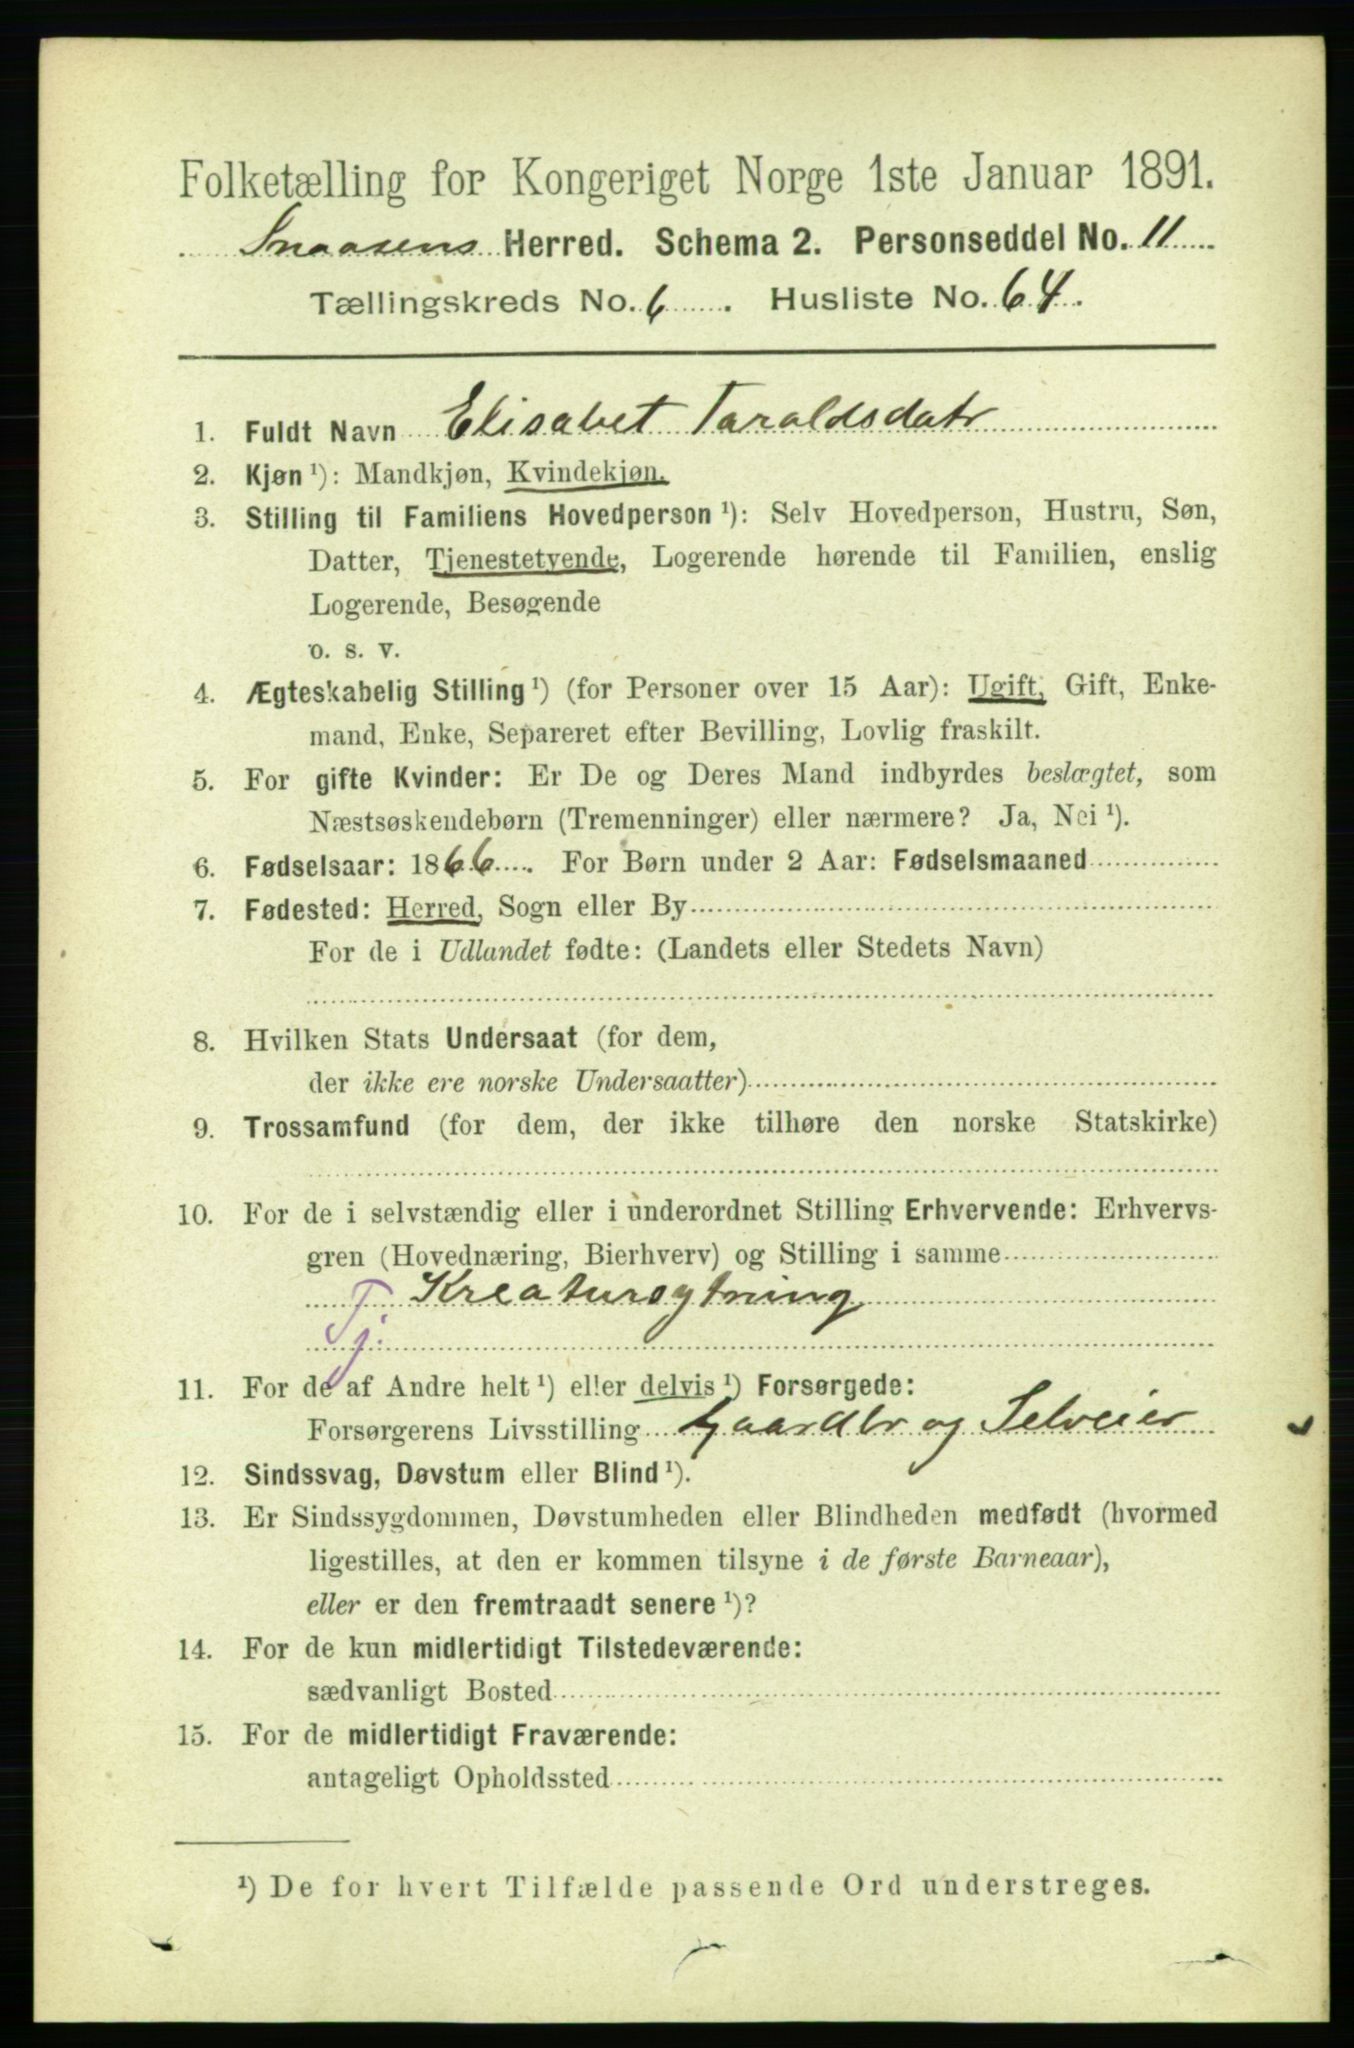 Folketælling for Kongeriget Norge 1ste Januar 1891.
Snaasens Herred. Schema 2. Personseddel No. 11
Tællingskreds No. 6. Husliste No. 64.
1. Fuldt Navn Elisabet Taraldsdatr
2. Kjøn ¹): Mandkjøn, Kvindekjøn.
3. Stilling til Familiens Hovedperson ¹): Selv Hovedperson, Hustru, Søn,
Datter, Tjenestetyende, Logerende hørende til Familien, enslig
Logerende, Besøgende
o. s. v.
4. Ægteskabelig Stilling ¹) (for Personer over 15 Aar): Ugift, Gift, Enke-
mand, Enke, Separeret efter Bevilling, Lovlig fraskilt.
5. For gifte Kvinder: Er De og Deres Mand indbyrdes beslægtet, som
Næstsøskendebørn (Tremenninger) eller nærmere? Ja, Nei ¹).
6. Fødselsaar: 1866. For Børn under 2 Aar: Fødselsmaaned
7. Fødested: Herred, Sogn eller By
For de i Udlandet fødte: (Landets eller Stedets Navn)
8. Hvilken Stats Undersaat (for dem,
der ikke ere norske Undersaatter)
9. Trossamfund (for dem, der ikke tilhøre den norske Statskirke)
10. For de i selvstændig eller i underordnet Stilling Erhvervende: Erhvervs-
gren (Hovednæring, Bierhverv) og Stilling i samme
Kreaturrøgtning
Tj.
11. For de af Andre helt ¹) eller delvis ¹) Forsørgede:
Forsørgerens Livsstilling Gaardbr og Selveier
12. Sindssvag, Døvstum eller Blind ¹).
13. Er Sindssygdommen, Døvstumheden eller Blindheden medfødt (hvormed
ligestilles, at den er kommen tilsyne i de første Barneaar),
eller er den fremtraadt senere ¹)?
14. For de kun midlertidigt Tilstedeværende:
sædvanligt Bosted
15. For de midlertidigt Fraværende:
antageligt Opholdssted
¹) De for hvert Tilfælde passende Ord understreges.